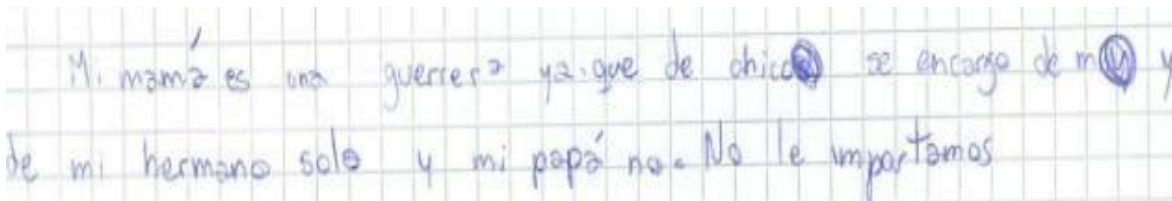 Mi mamá es una guerrera ya que de chico se encargo de m y
de mi hermano sola y mi papá no. No le importamos